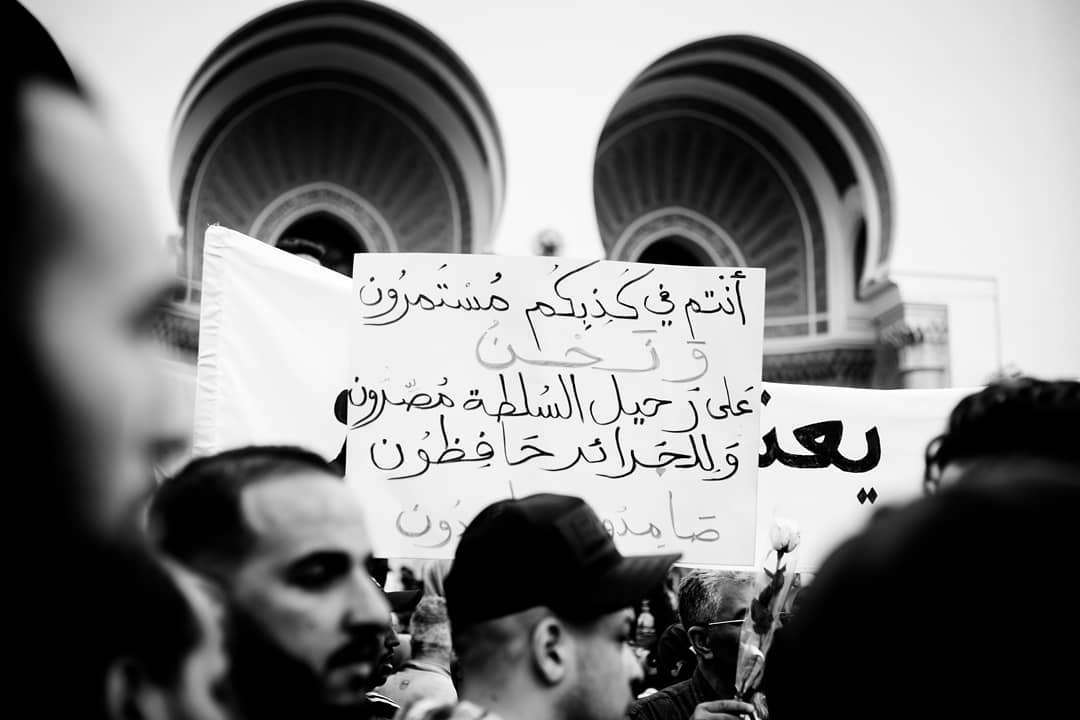 أَنتم في كَذِبِكُم مُسْتَمرُون
وَ نَحنُ
عَلى رَحيل السُلطة مُصّرون
وَللجَزائر حَافِظُون
صَامِدُون
يعتذ